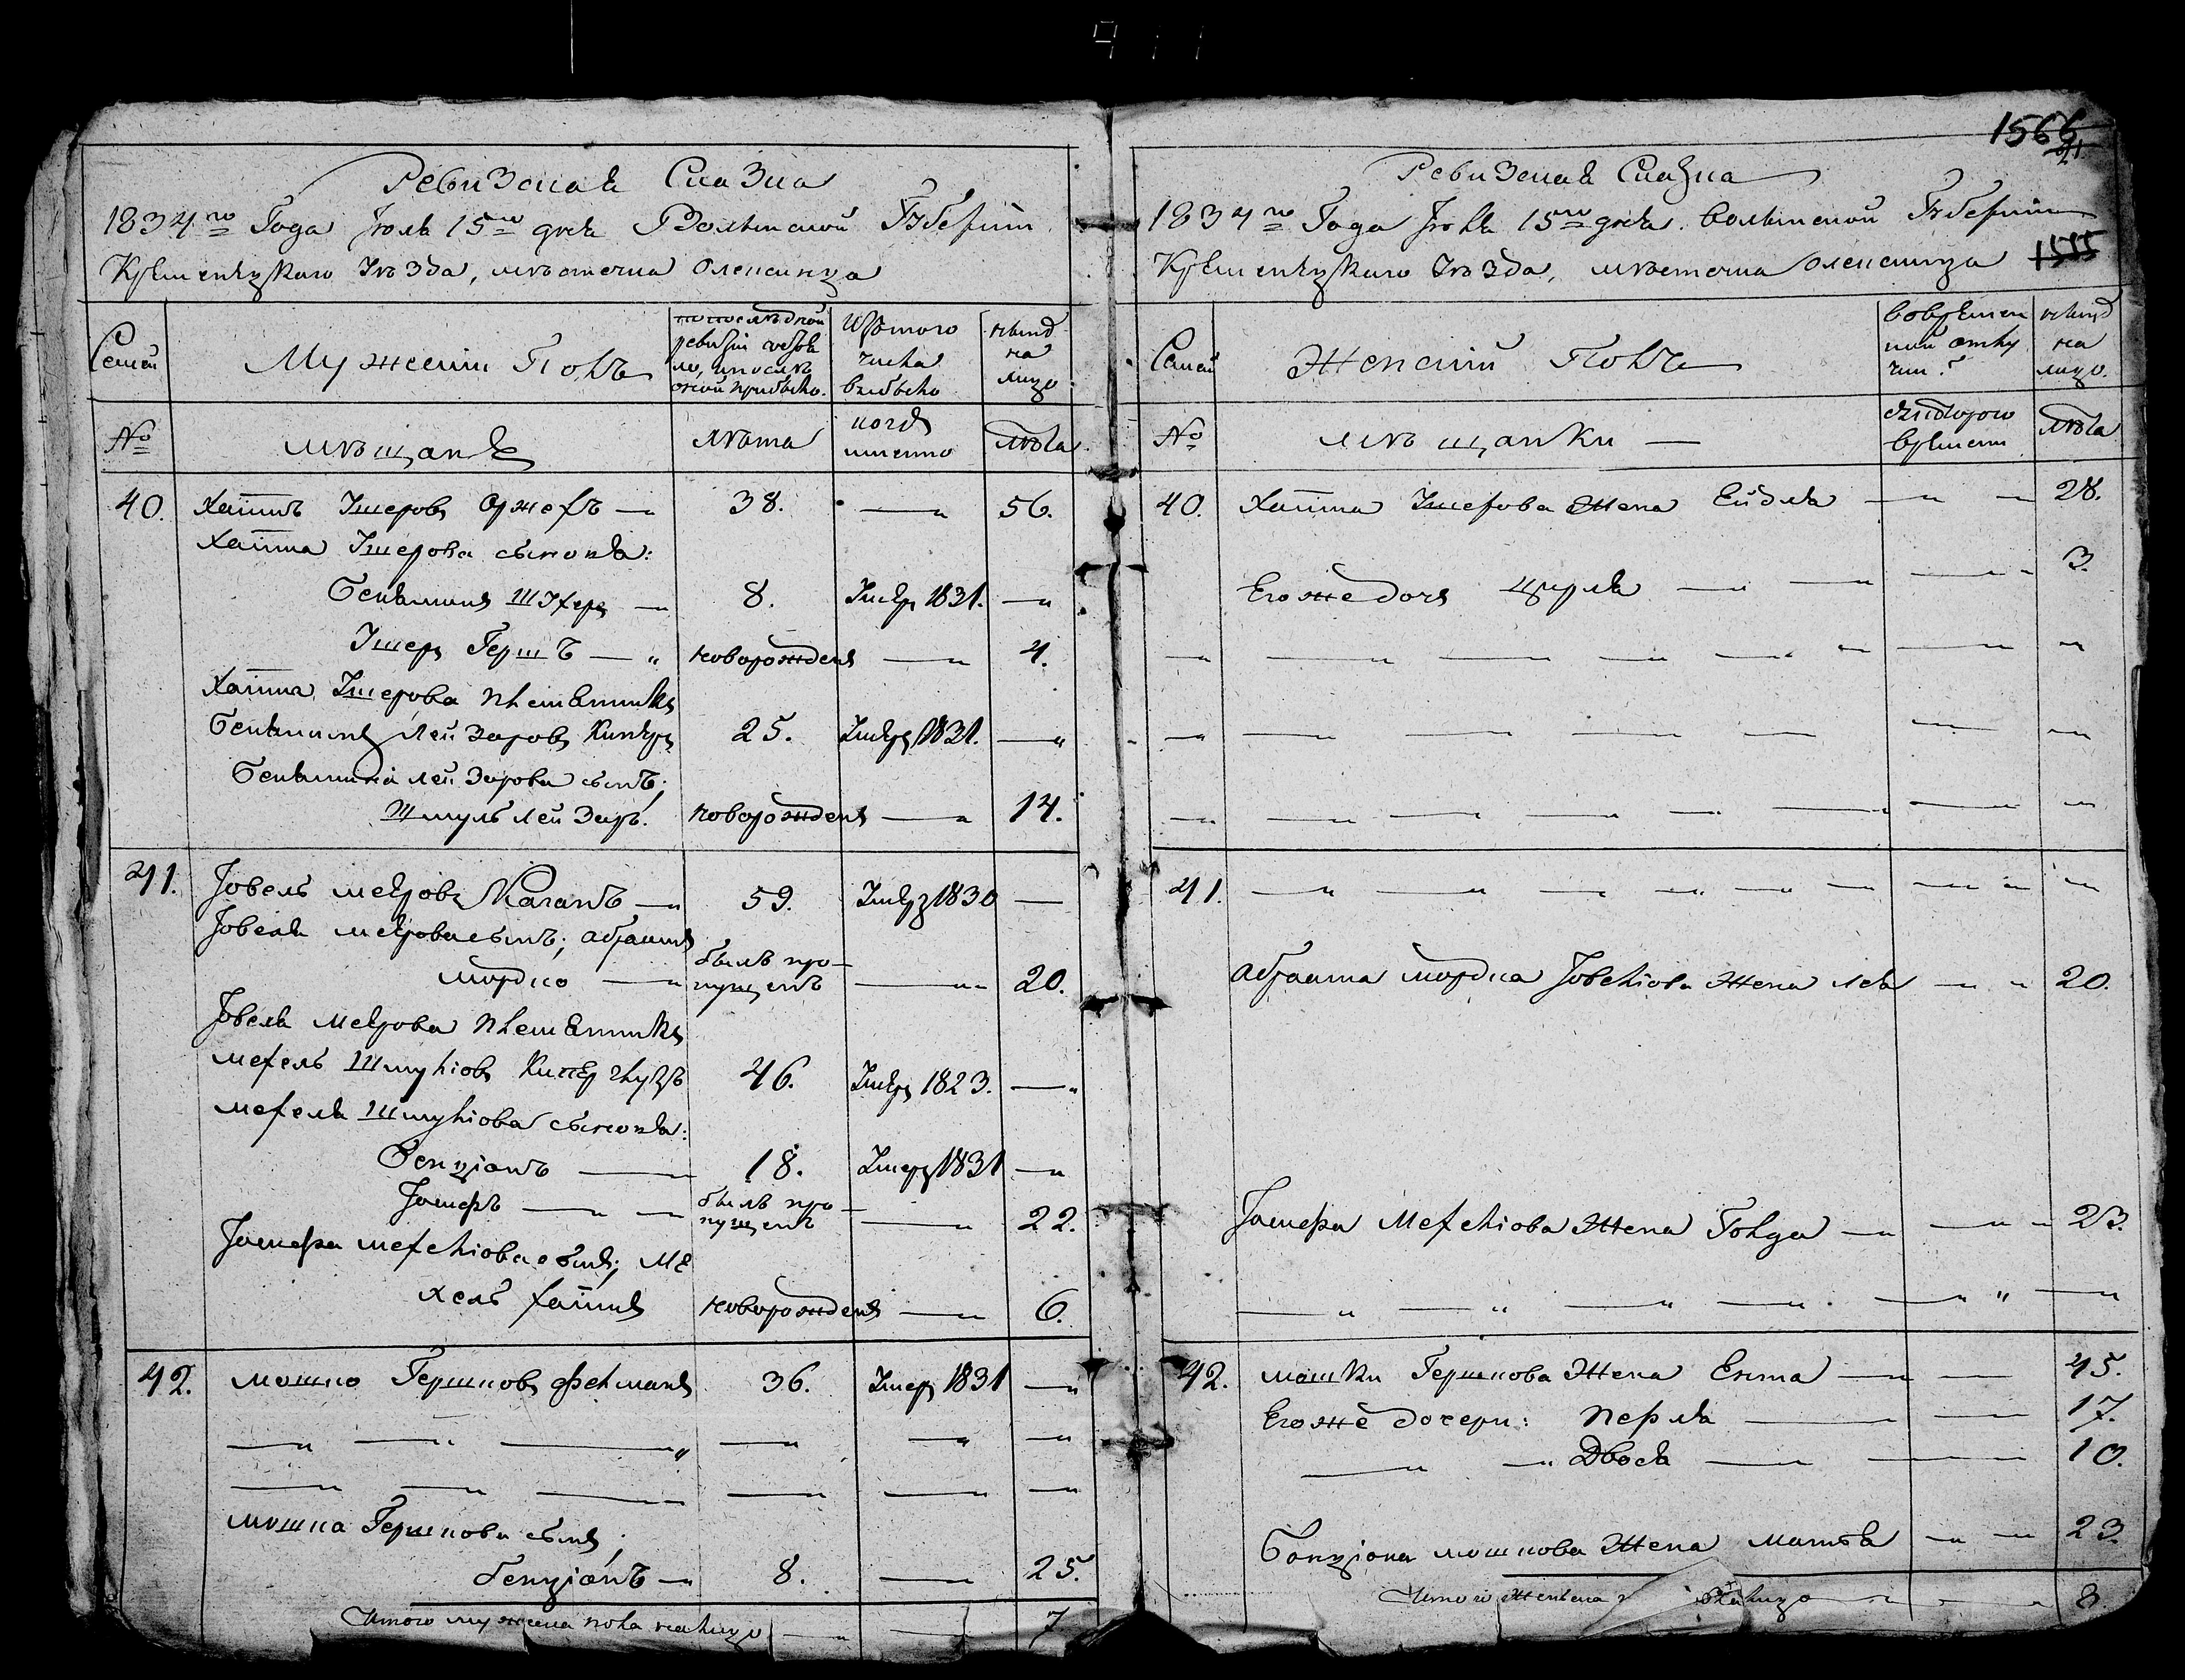 911
Ревизская Сказка
1834го Года Июля 15го дня Волынской Губернии
Кременецкаго Уезда, местечка Олексинца
Семьи
Мужеский Полъ
по последной
ревизии состоя
ло, и после
оной прибыло.
Изъ того
числа
выбыло
ныне
на
лицо
№
мещане
лета
когда
именно
лета
40.
Хаимъ Ишеровъ — 38. — 56.
Хаима Ишерова сыновья:
Беньяминъ — 8. Умеръ 1831. —
Ишеръ Гершъ — новорожденъ — 4.
Хаима Ишерова племянникъ
Беньяминъ Лейзоровъ 25. Умеръ 1831. —
Беньямина Лейзорова сынъ;
Шмуль Лейзоръ. новорожденъ — 14.
41.
Іовель Меэровъ Каганъ — 59. Умеръ 1830 —
Іовеля Меэрова сынъ; Абрамъ
Мордко — былъ пропущенъ — 20.
Іовеля Меэрова племянникъ
Мехель Шмуліовъ 46. Умеръ 1823. —
Мехеля Шмуліова сыновья:
Бенціонъ — 18. Умеръ 1831 —
— былъ пропущенъ — 22.
Мехеліова сынъ; Ме
хель Хаимъ новорожденъ — 6.
42.
Мошко Гершковъ Фельманъ 36. Умеръ 1831 —
Мошка Гершкова сынъ;
Бенціонъ — 8. — 25.
Итого мужеска пола налицо — 7
1566
21
Ревизская Сказка
1834го Года Июля 15го дня Волынской Губернии
Кременецкаго Уезда, местечка Олексинца
1555
Семьи
Женский Полъ
во времен
ной отлу
чки.
ныне
на
лицо.
№
мещанки —
съ котораго
времени
лета
40. Хаима Ишерова Жена Ейдля — 28.
Его же дочь Цирля — 3.
41.
Абрама Мордка Іовеліова Жена Лея — 20.
Мехеліова Жена Голда — 23.
42. Мошки Гершкова Жена Ента — 45.
Его же дочери: Перля — 17.
Двося — 10.
Бенціона Мошкова Жена — 23.
Итого Женска налицо — 8.